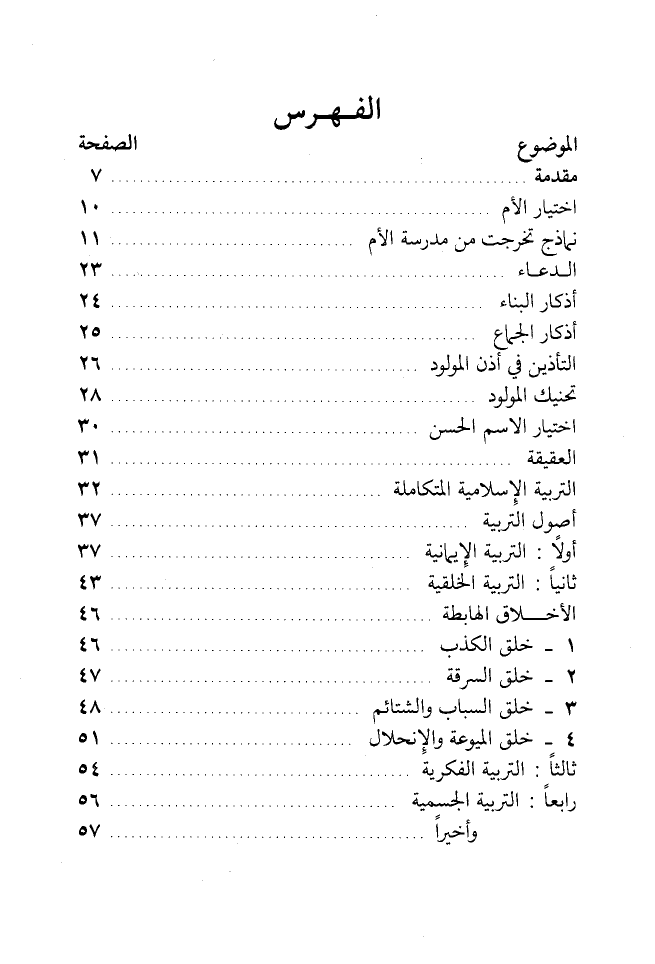 الفهرس
الموضوع الصفحة
مقدمة ................ ٧
اختيار الأم ................ ١٠
نماذج تخرجت من مدرسة الأم ................ ١١
الدعاء ................ ٢٣
أذكار البناء ................ ٢٤
أذكار الجماع ................ ٢٥
التأذين في أذن المولود ................ ٢٦
تحنيك المولود ................ ٢٨
اختيار الاسم الحسن ................ ٣٠
العقيقة ................ ٣١
التربية الإسلامية المتكاملة ................ ٣٢
أصول التربية ................ ٣٧
أولاً : التربية الإيمانية ................ ٣٧
ثانياً : التربية الخلقية ................ ٤٣
الأخلاق الهابطة ................ ٤٦
١ ـ خلق الكذب ................ ٤٦
٢ ـ خلق السرقة ................ ٤٧
٣ ـ خلق السباب والشتائم ................ ٤٨
٤ ـ خلق الميوعة والإنحلال ................ ٥١
ثالثاً : التربية الفكرية ................ ٥٤
رابعاً : التربية الجسمية ................ ٥٦
وأخيراً ................ ٥٧